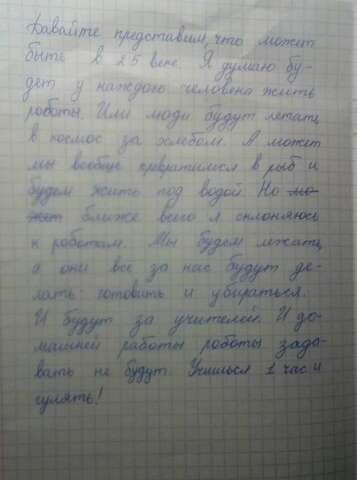 Давайте представим, что может
быть в 25 веке. Я думаю бу-
дет у каждого человека жить
роботы. Или люди будут летать
в космос за хлебом. А может
мы вообще превратимся в рыб и
будем жить под водой. Но мо-
жет ближе всего я склоняюсь
к роботам. Мы будем лежать,
а они все за нас будут де-
лать: готовить и убираться.
И будут за учителей. И до-
машней работы роботы зада-
вать не будут. Учишься 1 час и
гулять!